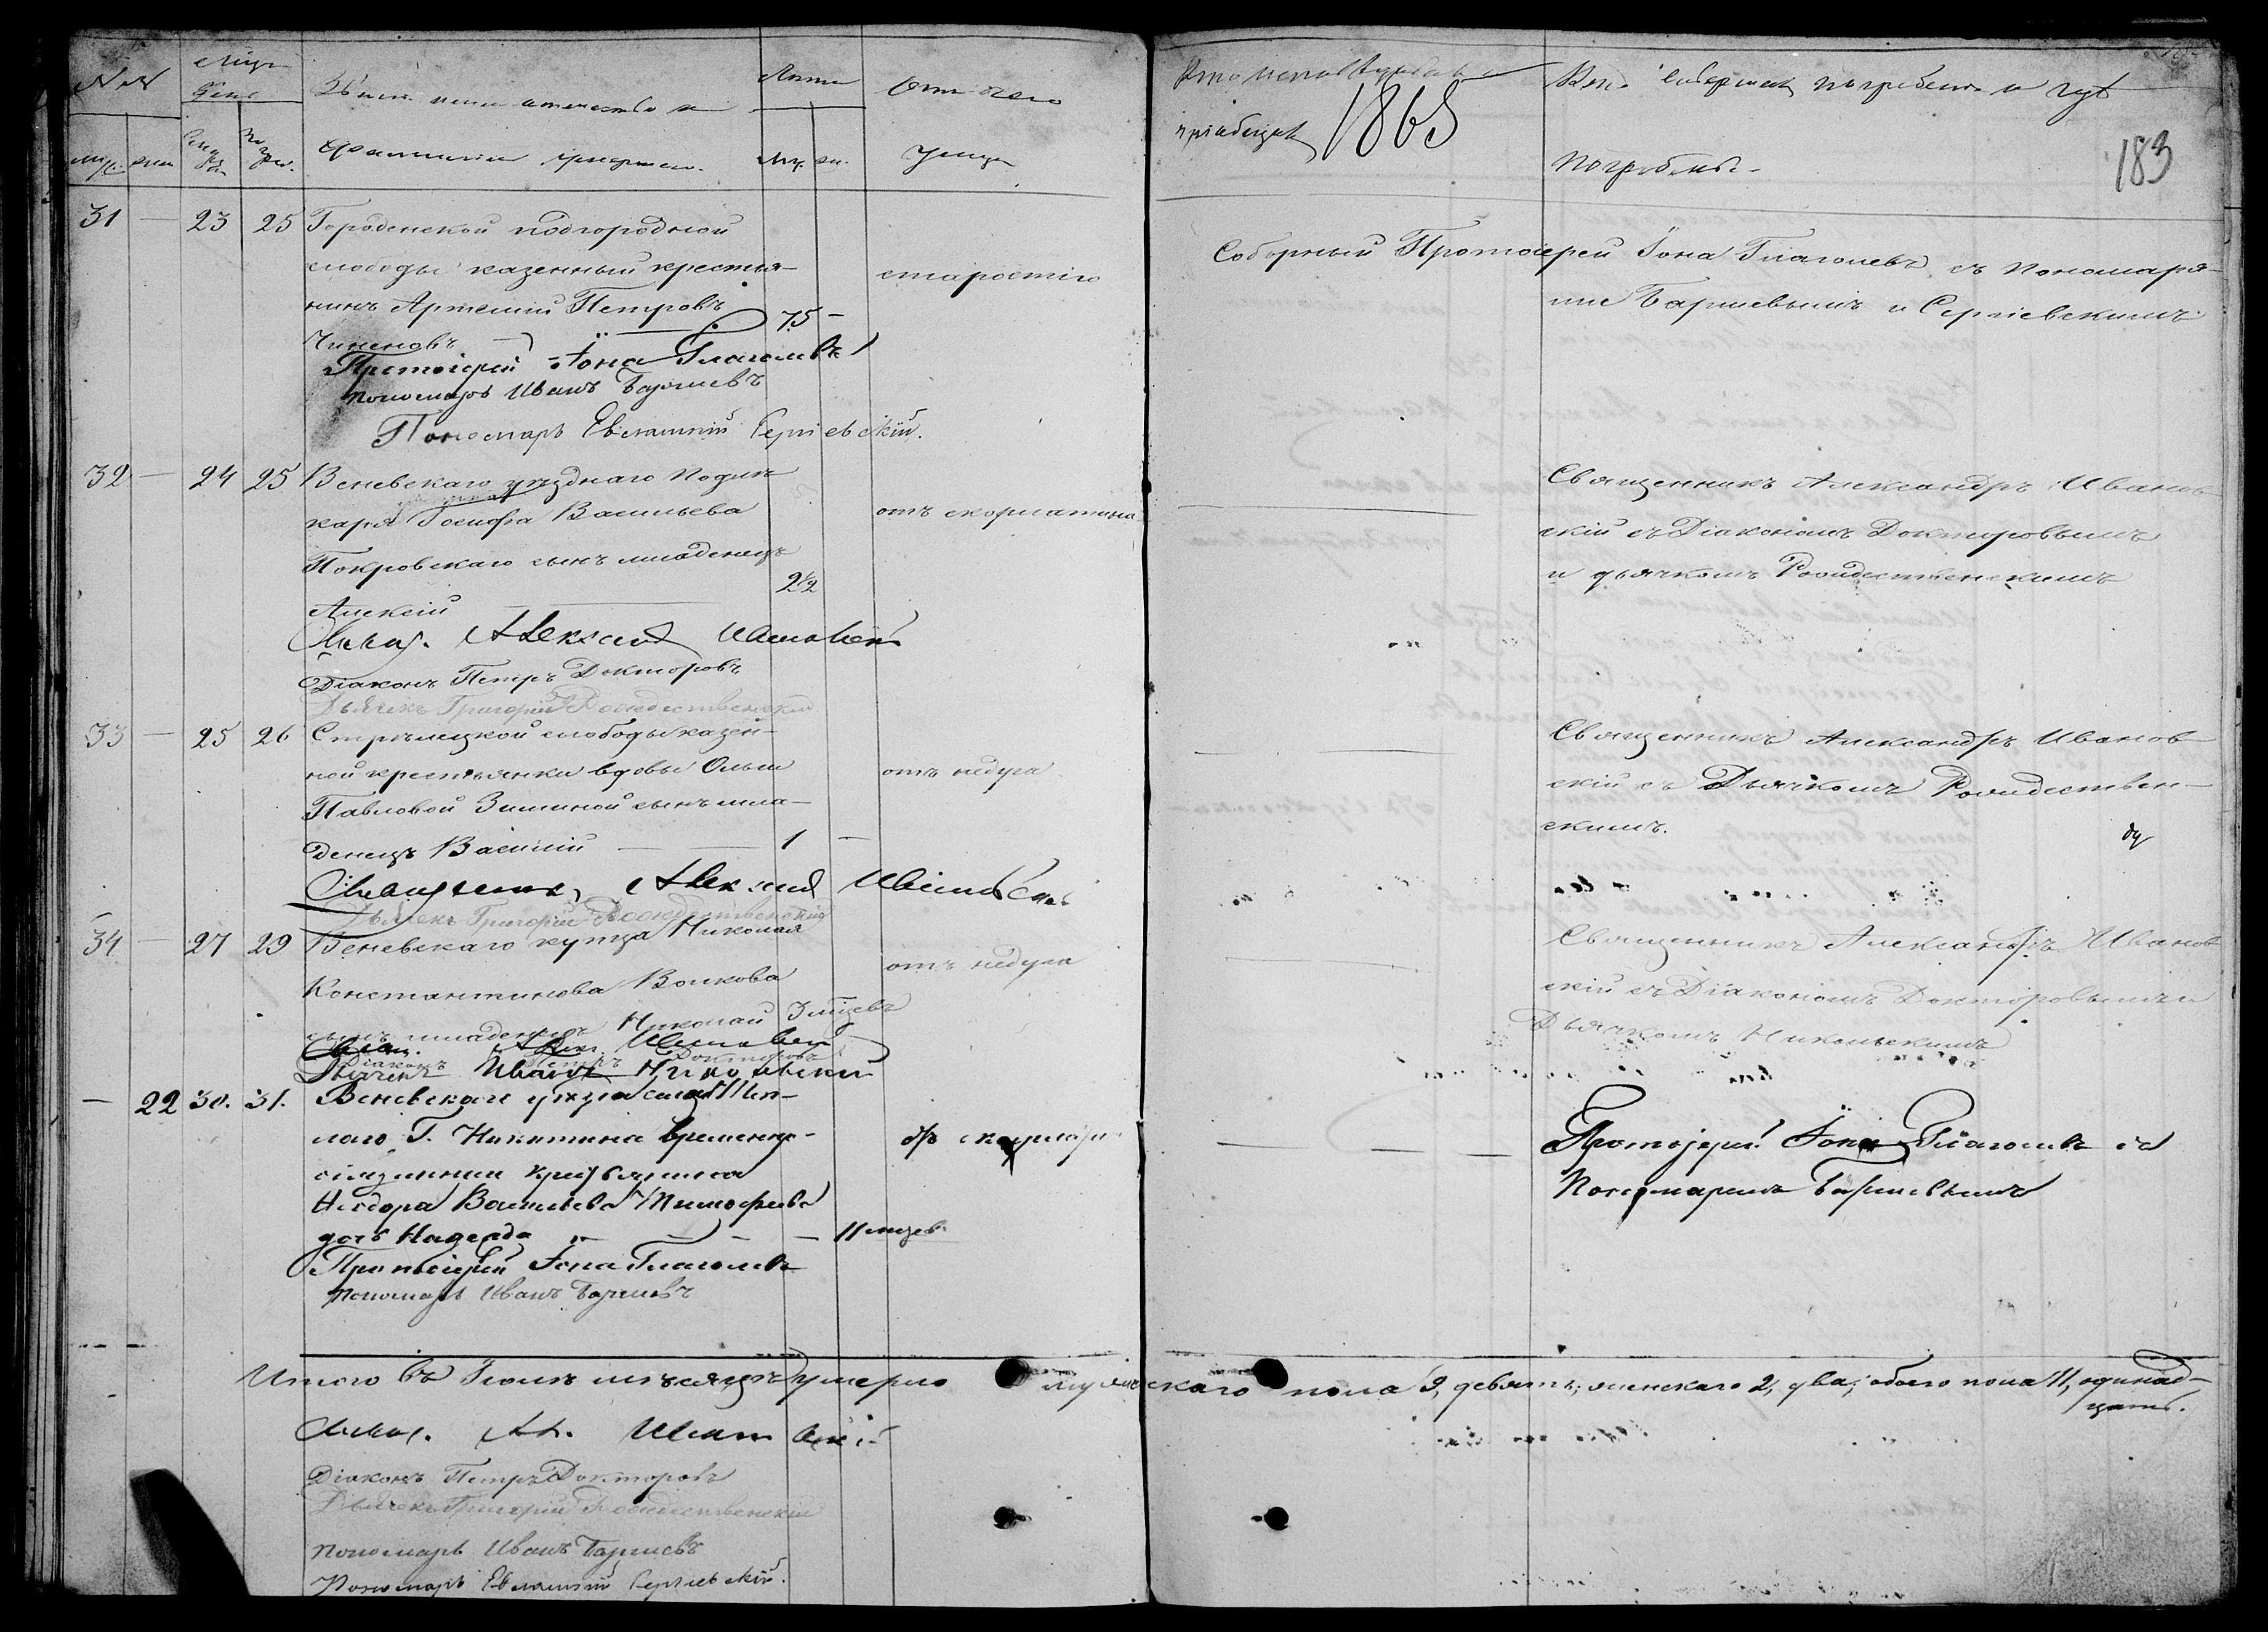 №№
Мцъ
день
Званіе имя отечество и
фамилія умершаго.
Лѣта
Му. жн.
Отъ чего
умеръ
Кто исповѣдывалъ
пріобщалъ
1865
Кто совершалъ погребеніе и гдѣ
погребены.
183
31 — 23 25 Городенской подгородной
слободы казенный крестья-
нинъ Артемій Петровъ
75 —
Чиненовъ
старостію
Соборный Протоіерей Іона Глаголевъ съ пономаря-
ми Баршевымъ и Сергіевскимъ
Протоіерей Іона Глаголевъ
Пономарь Иванъ Баршевъ
Пономарь Евлампій Сергіевскій.
32 — 24 25 Веневскаго уѣзднаго Подлѣ-
каря Іосифа Васильева
Покровскаго сынъ младенецъ
2½
Алексій
отъ скорлатина
Священникъ Александръ Иванов-
скій съ Діакономъ Докторовымъ
и дьячкомъ Рождественскимъ
Свящ. Александ Ивановскій
Діаконъ Петръ Докторовъ
Дьячекъ Григорій Рождественскій
33 — 25 26 Стрѣлецкой слободы казен-
ной крестьянки вдовы Ольги
Павловой Зиминой сынъ мла-
денецъ Василій — 1 —
отъ недуга
Священникъ Александръ Иванов-
скій съ Дьячкомъ Рождествен-
скимъ.
Священникъ Александ Ивановскій
Дьячекъ Григорій Рождественскій
34 — 27 29 Веневскаго купца Николая
Константинова Волкова
сынъ младенецъ Николай 3 мцевъ
отъ недуга
Священникъ Александръ Иванов-
скій съ Діакономъ Докторовымъ и
Дьячкомъ Никольскимъ
Свящ. Алек. Ивановскій
Діаконъ Петръ Докторовъ
Дьячекъ Иванъ Никольскій
— 22 30. 31. Веневскаго уѣзда
Г. Никитина временно-
обязаннаго крестьянина
Ѳеодора Васильева Тимофѣева
дочь Надежда — 11 мцев.
отъ скарлат
Протоіерей Іона Глаголевъ съ
Пономаремъ Баршевымъ
Протоіерей Іона Глаголевъ
Пономарь Иванъ Баршевъ
Итого въ Іюлѣ мѣсяцѣ умерло мужескаго пола 9, девять; женскаго 2, два; обоего пола 11, одинад-
цать.
Свящ. Ал. Ивановскій
Діаконъ Петръ Докторовъ
Дьячекъ Григорій Рождественскій
Пономарь Иванъ Баршевъ
Пономарь Евлампій Сергіевскій.